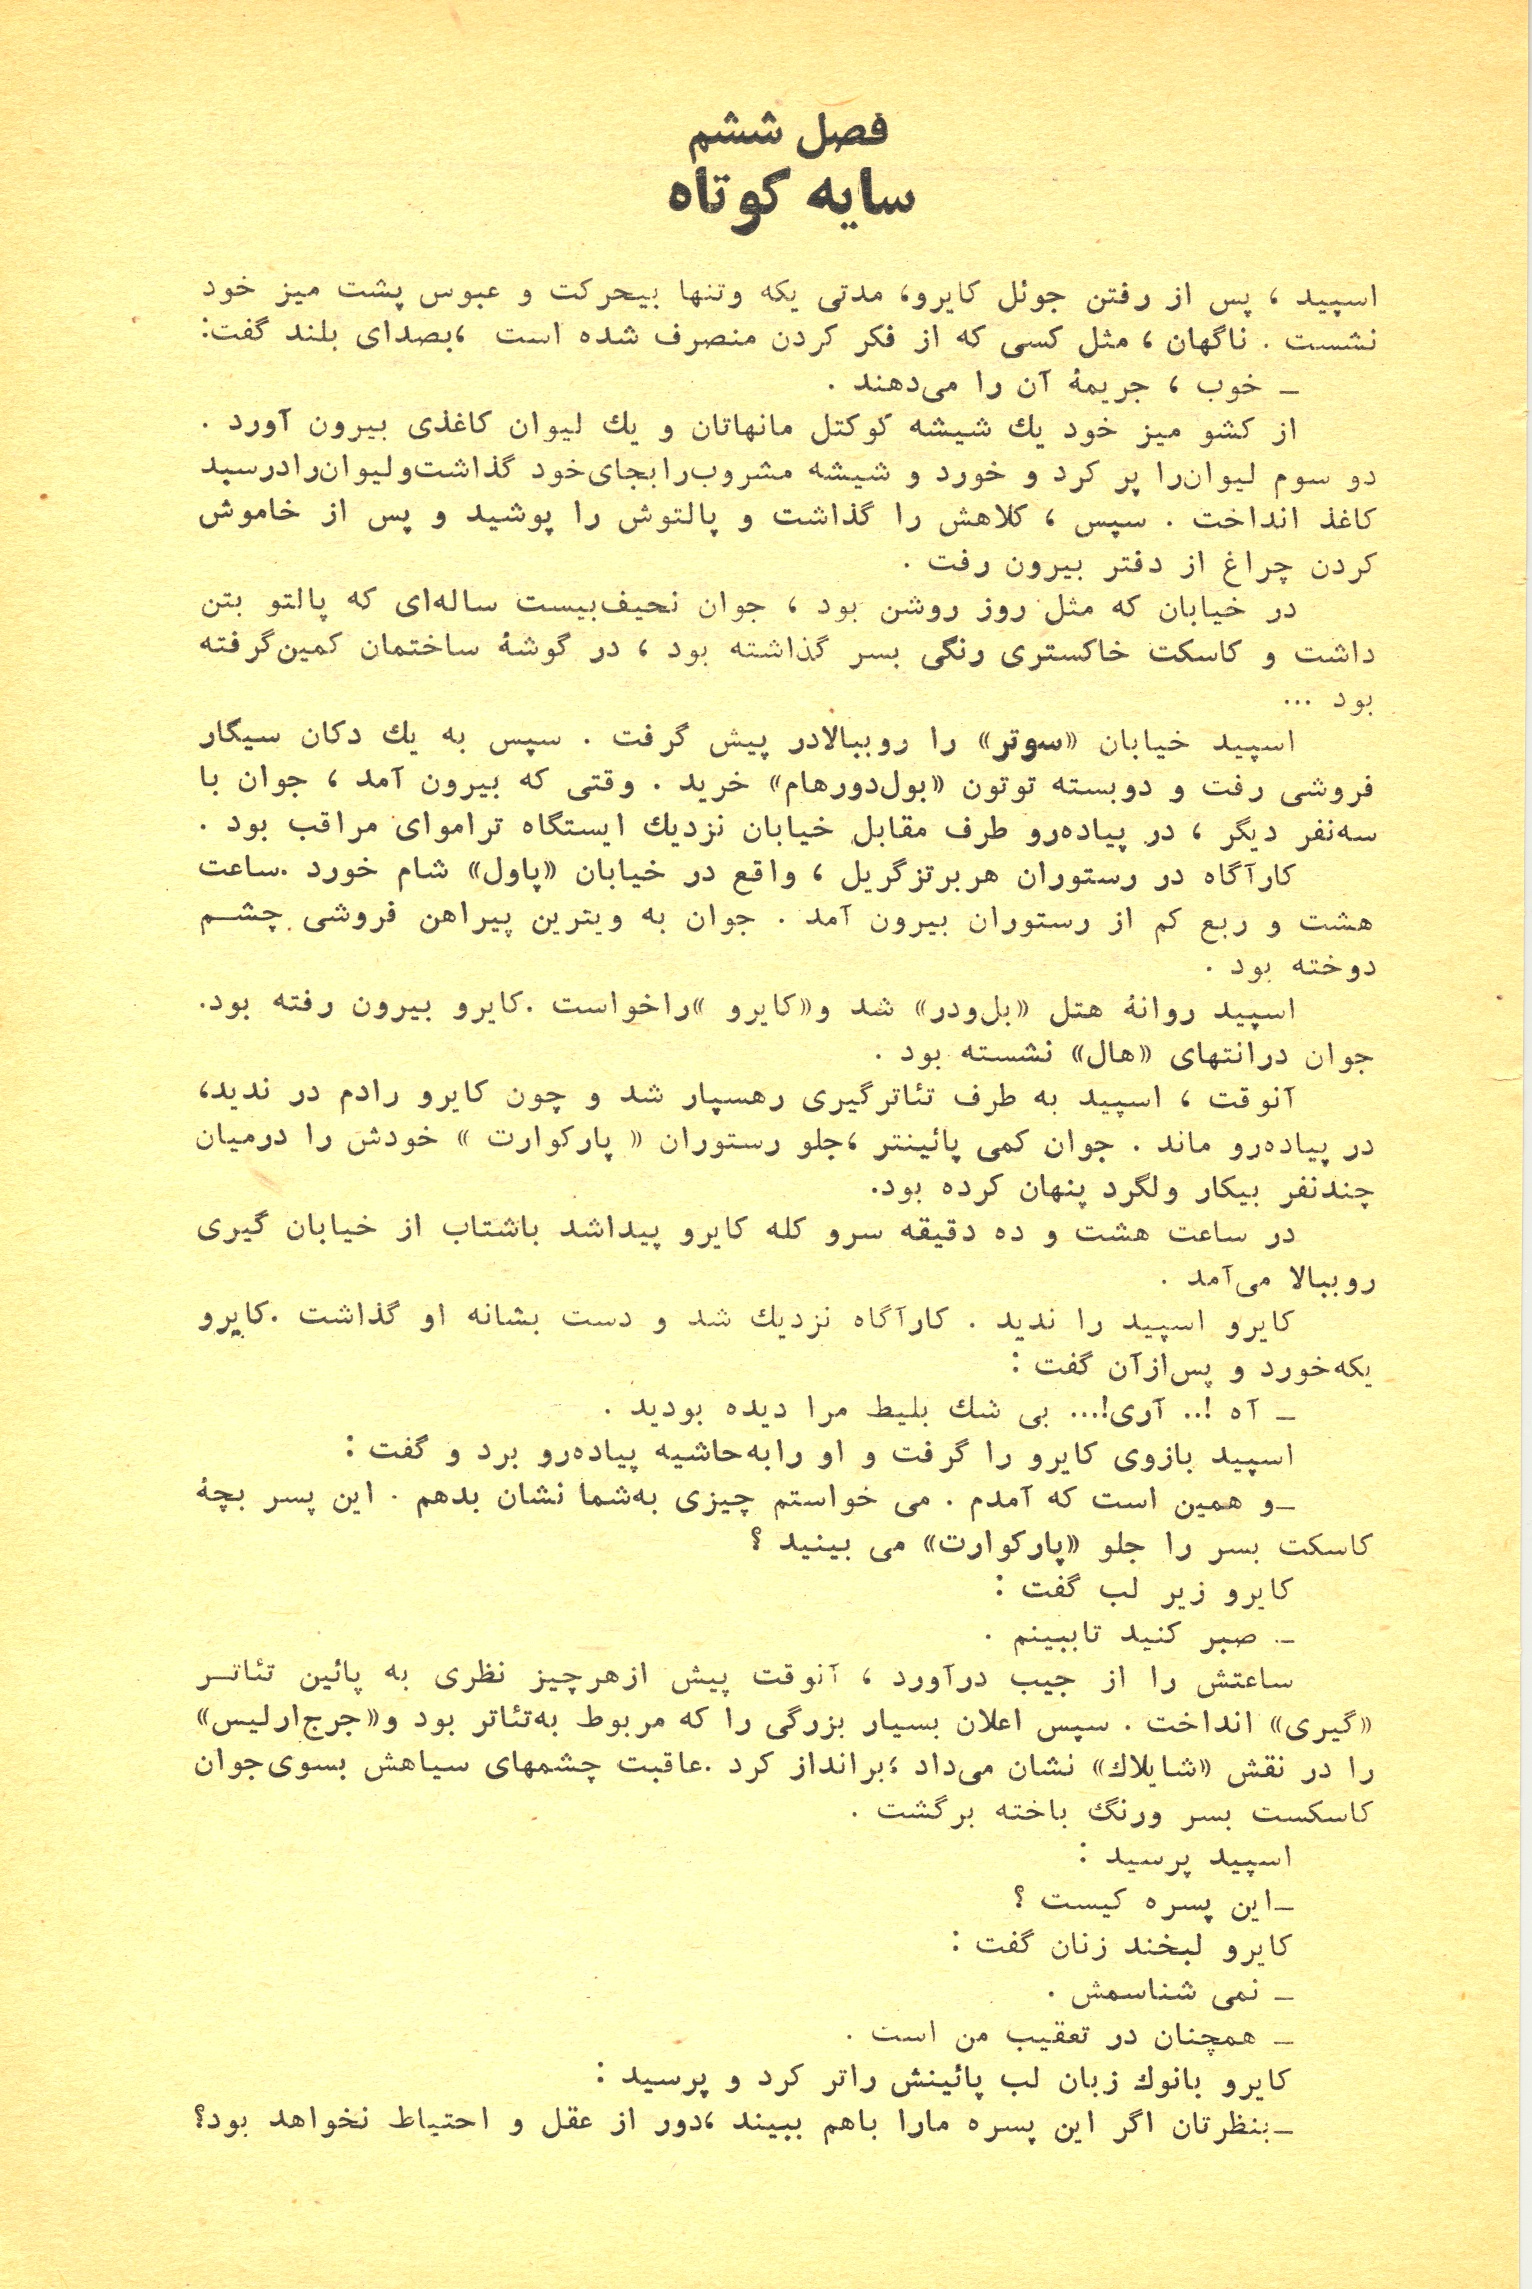 فصل ششم
سایه کوتاه
اسپید ، پس از رفتن جوئل کایرو، مدتی یکه وتنها بیحرکت و عبوس پشت میز خود
نشست . ناگهان ، مثل کسی که از فکر کردن منصرف شده است ،بصدای بلند گفت:
ـ خوب ، جریمهٔ آن را می‌دهند .
از کشو میز خود یك شیشه کوکتل مانهاتان و یك لیوان کاغذی بیرون آورد .
دو سوم لیوان‌را پر کرد و خورد و شیشه مشروب‌را بجای‌خود گذاشت‌ولیوان‌رادرسبد
کاغذ انداخت . سپس ، کلاهش را گذاشت و پالتوش را پوشید و پس از خاموش
کردن چراغ از دفتر بیرون رفت .
در خیابان که مثل روز روشن بود ، جوان نحیف‌بیست ساله‌ای که پالتو بتن
داشت و کاسکت خاکستری رنگی بسر گذاشته بود ، در گوشهٔ ساختمان کمین‌گرفته
بود ...
اسپید خیابان «سوتر» را روببالادر پیش گرفت . سپس به یك دکان سیگار
فروشی رفت و دوبسته توتون «بول‌دورهام» خرید . وقتی که بیرون آمد ، جوان با
سه‌نفر دیگر ، در پیاده‌رو طرف مقابل خیابان نزدیك ایستگاه تراموای مراقب بود .
کارآگاه در رستوران هربرتزگریل ، واقع در خیابان «پاول» شام خورد .ساعت
هشت و ربع کم از رستوران بیرون آمد . جوان به ویترین پیراهن فروشی چشم
دوخته بود .
اسپید روانهٔ هتل «بل‌ودر» شد و«کایرو »راخواست .کایرو بیرون رفته بود.
جوان درانتهای «هال» نشسته بود .
آنوقت ، اسپید به طرف تئاترگیری رهسپار شد و چون کایرو رادم در ندید،
در پیاده‌رو ماند . جوان کمی پائینتر ،جلو رستوران « پارکوارت » خودش را درمیان
چندنفر بیکار ولگرد پنهان کرده بود.
در ساعت هشت و ده دقیقه سرو کله کایرو پیداشد باشتاب از خیابان گیری
روببالا می‌آمد .
کایرو اسپید را ندید . کارآگاه نزدیك شد و دست بشانه او گذاشت .کایرو
یکه‌خورد و پس‌ازآن گفت :
ـ آه !.. آری!... بی شك بلیط مرا دیده بودید .
اسپید بازوی کایرو را گرفت و او رابه‌حاشیه پیاده‌رو برد و گفت :
ـو همین است که آمدم . می خواستم چیزی به‌شما نشان بدهم . این پسر بچهٔ
کاسکت بسر را جلو «پارکوارت» می بینید ؟
کایرو زیر لب گفت :
ـ صبر کنید تاببینم .
ساعتش را از جیب درآورد ، آنوقت پیش ازهرچیز نظری به پائین تئاتر
«گیری» انداخت . سپس اعلان بسیار بزرگی را که مربوط به‌تئاتر بود و«جرج‌ارلیس»
را در نقش «شایلاك» نشان می‌داد ،برانداز کرد .عاقبت چشمهای سیاهش بسوی‌جوان
کاسکست بسر ورنگ باخته برگشت .
اسپید پرسید :
ـاین پسره کیست ؟
کایرو لبخند زنان گفت :
ـ نمی شناسمش .
ـ همچنان در تعقیب من است .
کایرو بانوك زبان لب پائینش راتر کرد و پرسید :
ـبنظرتان اگر این پسره مارا باهم ببیند ،دور از عقل و احتیاط نخواهد بود؟